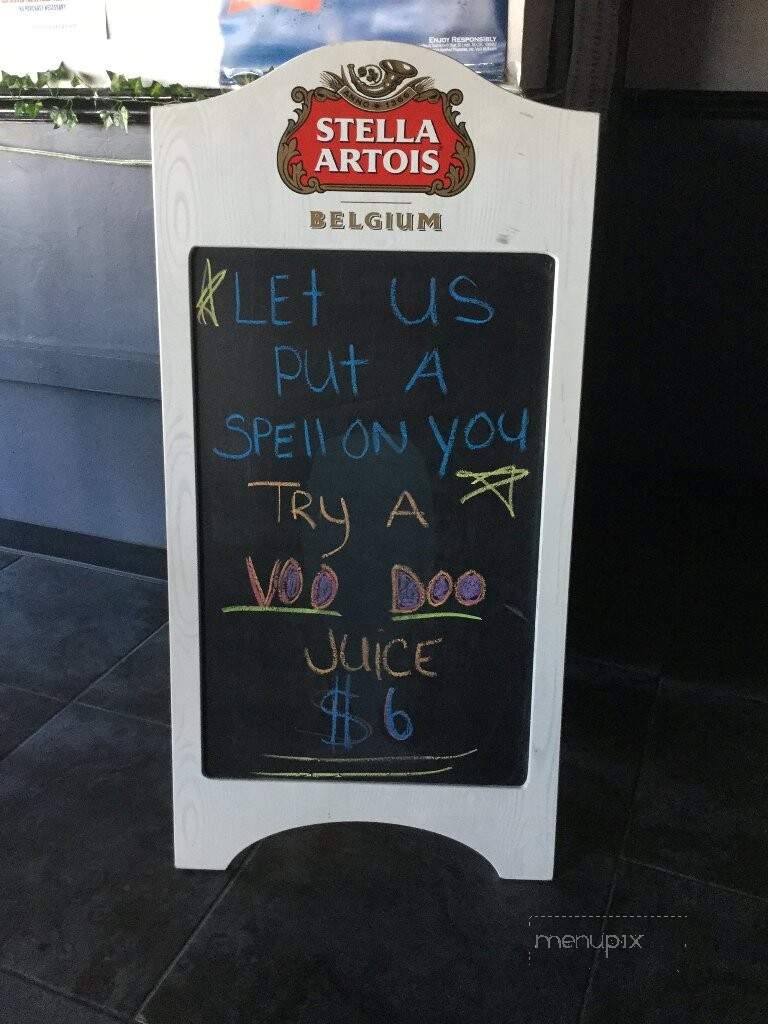 ENJOY RESPONSIBLY
ANNO 1366
STELLA
ARTOIS
BELGIUM
LEt US
PUt A
SPEll ON YOU
TRY A
VOO DOO
JUiCE
$6
menupix